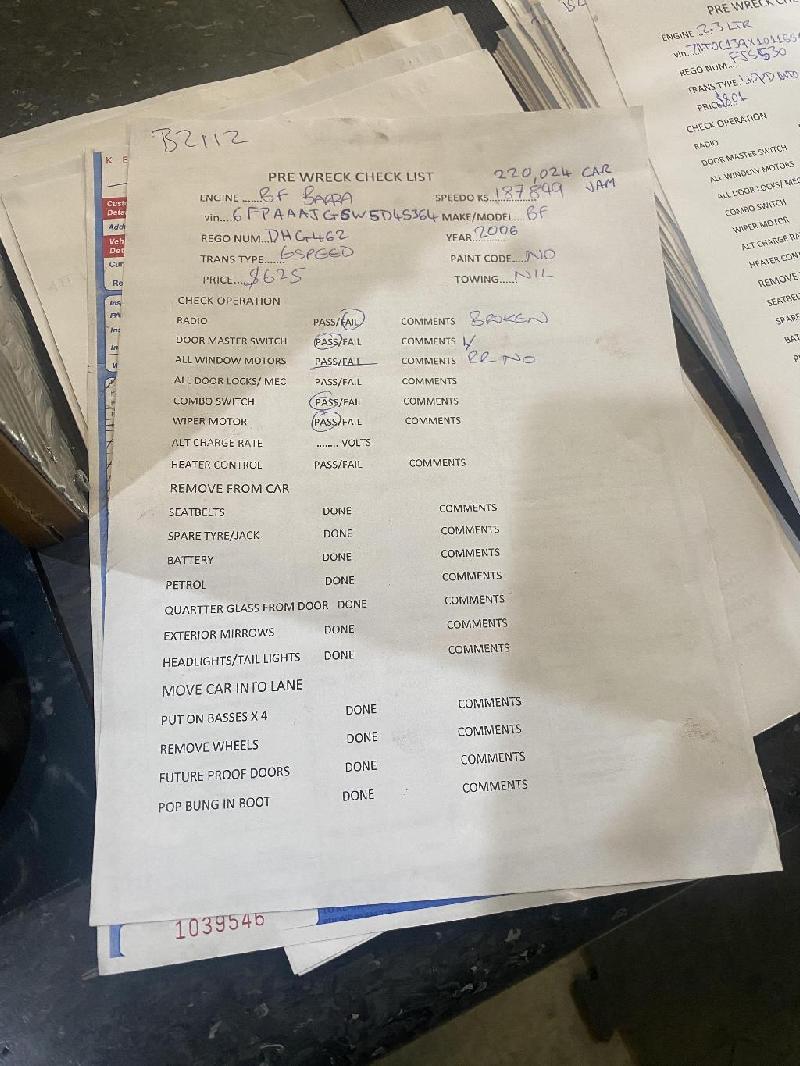 B2112
PRE WRECK CHECK LIST
220,024 CAR
ENGINE ..... BF BARRA SPEEDO KS. 187,899 JAM
vin.. 6FPAAAJGSW5D45364 MAKE/MODEL BF
REGO NUM.. DHG462 YEAR.. 2006
TRANS TYPE .. 6SPEED PAINT CODE.... NO
PRICE.... $625 TOWING..... NIL
CHECK OPERATION
RADIO PASS/FAIL COMMENTS BROKEN
DOOR MASTER SWITCH PASS/FAIL COMMENTS
ALL WINDOW MOTORS PASS/FAIL COMMENTS RR-NO
ALL DOOR LOCKS/ MEC PASS/FAIL COMMENTS
COMBO SWITCH PASS/FAIL COMMENTS
WIPER MOTOR PASS/FAIL COMMENTS
ALT CHARGE RATE ........ VOLTS
HEATER CONTROL PASS/FAIL COMMENTS
REMOVE FROM CAR
SEATBELTS DONE COMMENTS
SPARE TYRE/JACK DONE COMMENTS
BATTERY DONE COMMENTS
PETROL DONE COMMENTS
QUARTTER GLASS FROM DOOR DONE COMMENTS
EXTERIOR MIRROWS DONE COMMENTS
HEADLIGHTS/TAIL LIGHTS DONE COMMENTS
MOVE CAR INTO LANE
PUT ON BASSES X 4 DONE COMMENTS
REMOVE WHEELS DONE COMMENTS
FUTURE PROOF DOORS DONE COMMENTS
POP BUNG IN BOOT DONE COMMENTS
1039546
PRE WRECK
ENGINE 2.3 LTR
vin..
REGO NUM..
TRANS TYPE
PRICE
CHECK OPERATION
RADIO
DOOR MASTER SWITCH
ALL WINDOW MOTORS
ALL DOOR LOCKS/ MEC
COMBO SWITCH
WIPER MOTOR
ALT CHARGE
HEATER CONT
REMOVE
SEATBEL
SPARE
BAT